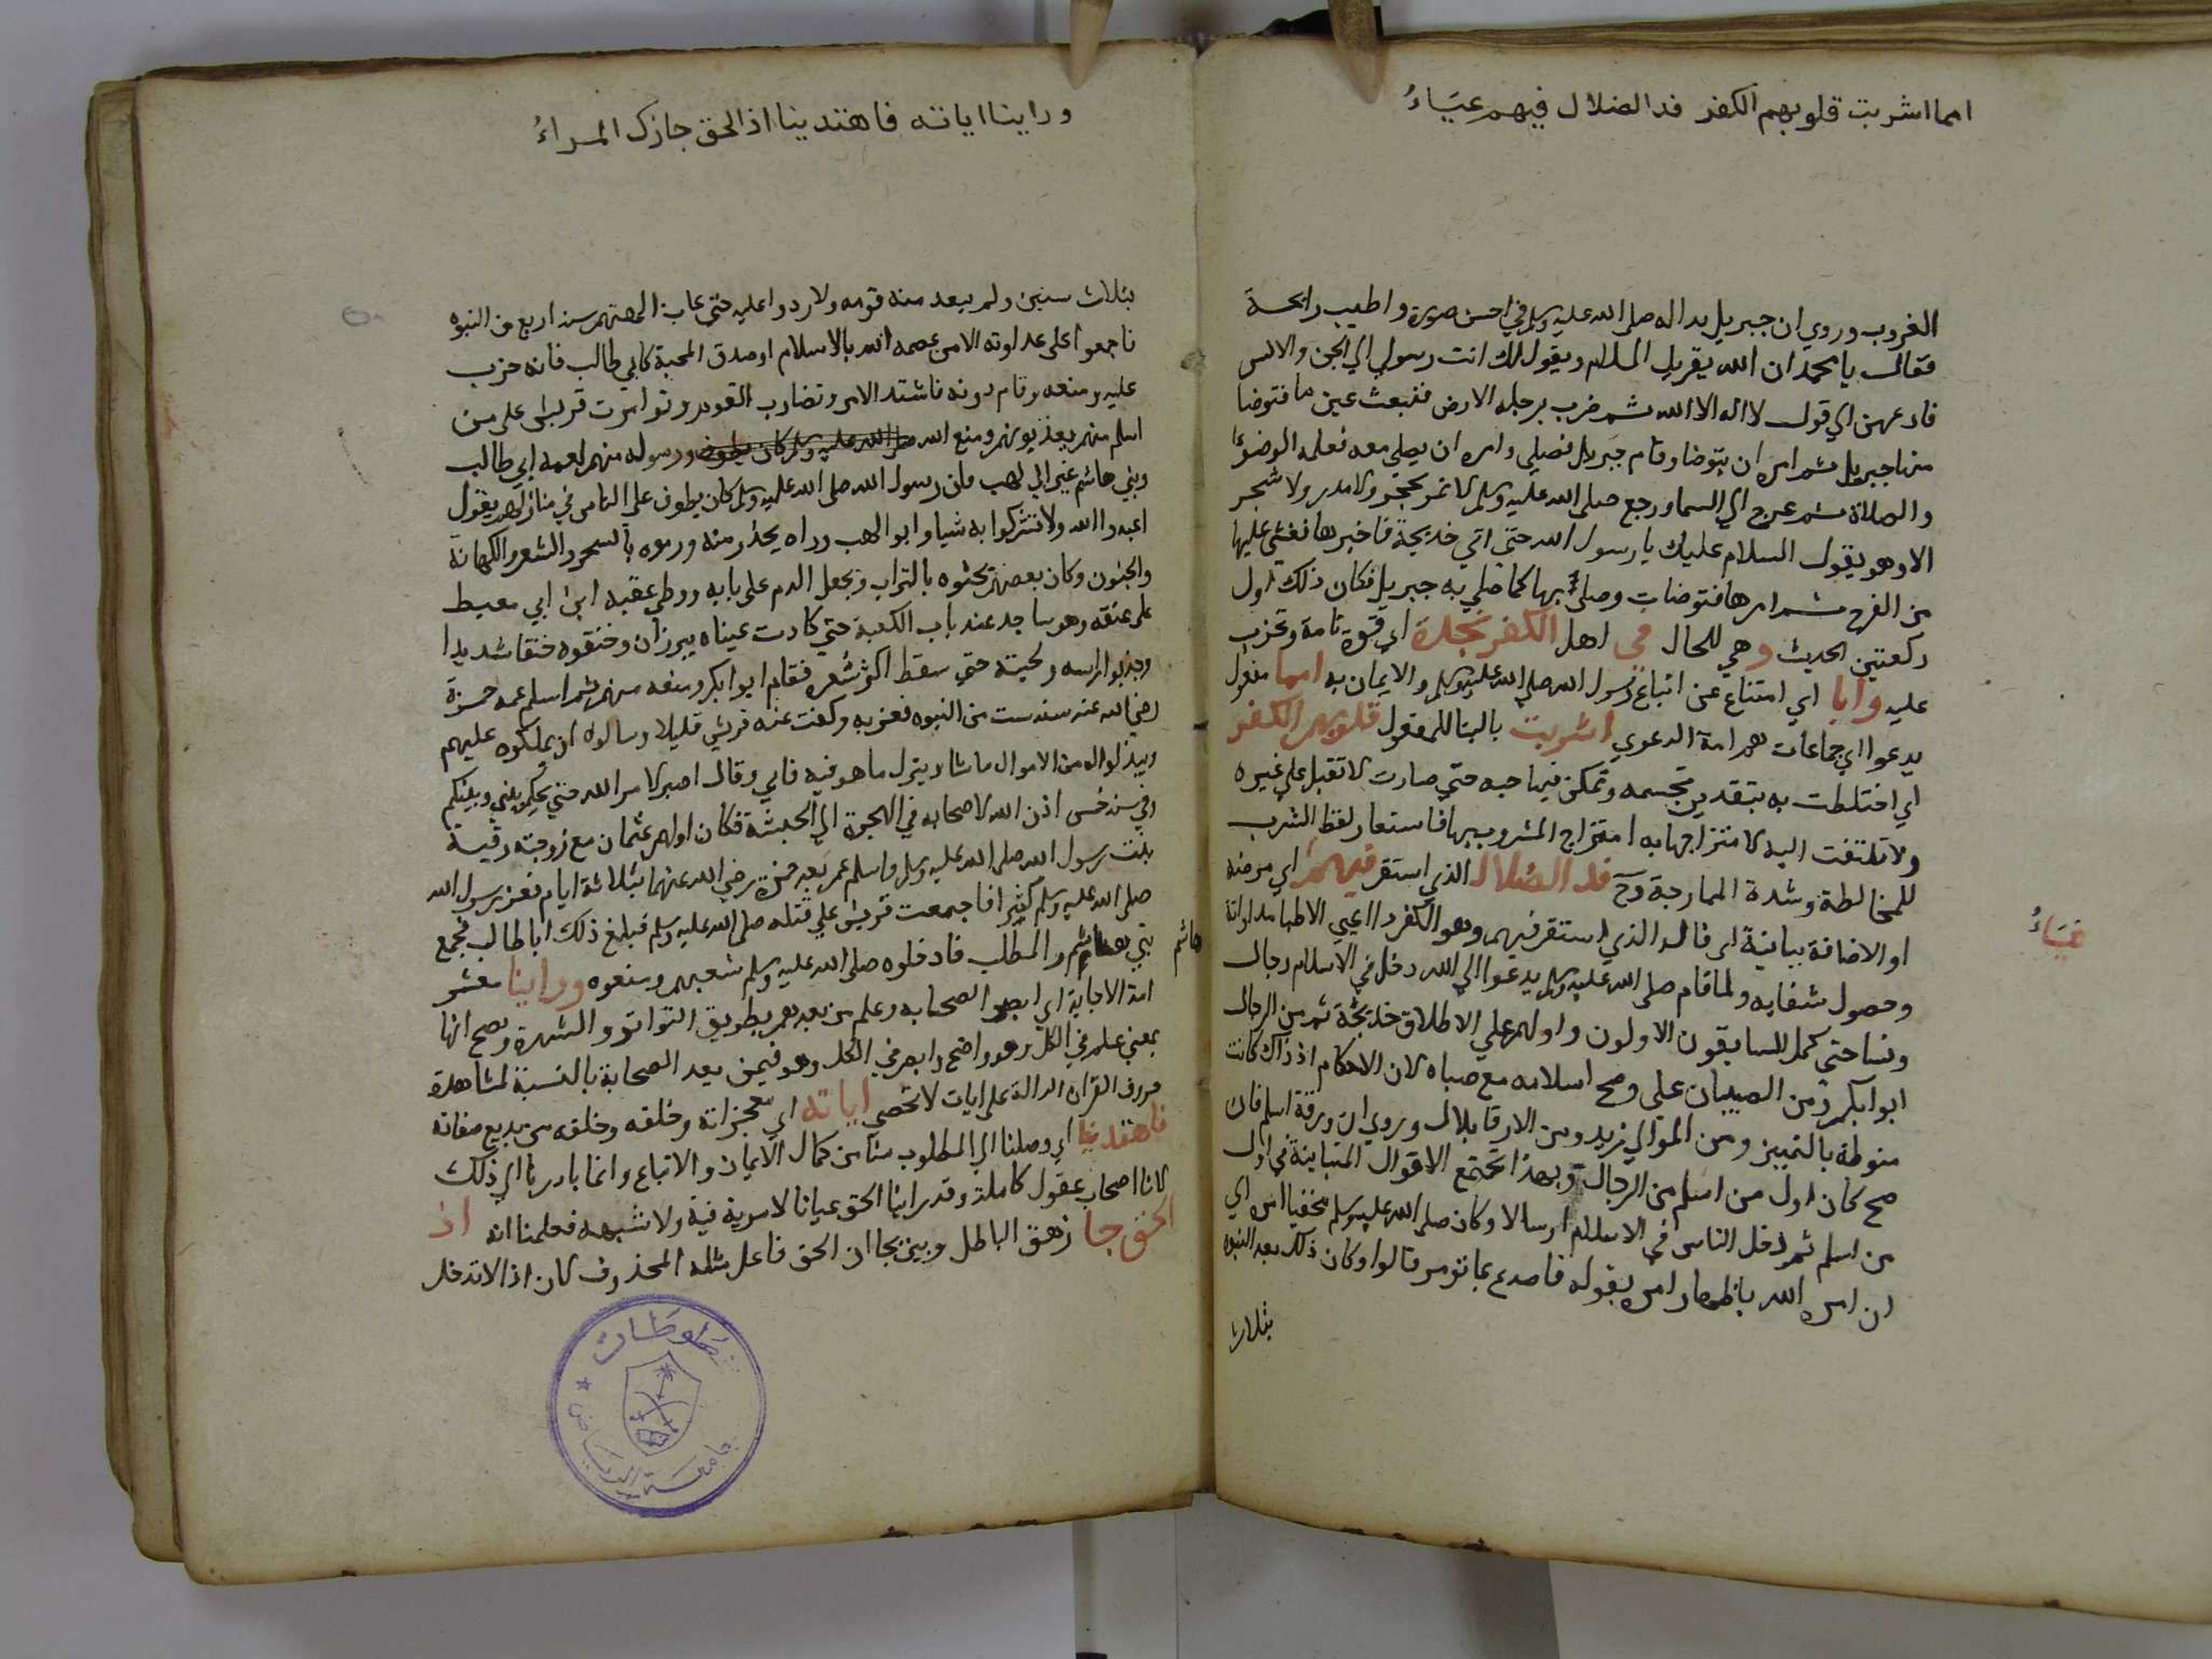 امما اشربت قلوبهم الكفر فدا الضلال فيهم عياءُ
الغروب وروي ان جبريل بدا له صلى الله عليه وسلم في احسن صورة واطيب رايحة
فقال يا محمد ان الله يقريك السلام ويقول لك انت رسولي الي الجن والانس
فادعهم الي قول لا اله الا الله ثم ضرب برجله الارض فنبعت عين ما فتوضا
منها جبريل ثم امره ان يتوضا وقام جبريل فصيلي وامره ان يصلي معه فعلمه الوضوء
والصلاة ثم عرج الي السما ورجع صلى الله عليه وسلم لا تمر بحجر ولا مدر ولا شجر
الا وهو يقول السلام عليك يا رسول الله حتي اتي خديجة فاخبرها فغشي عليها
من الفرح ثم امرها فتوضات وصلى بها كما صلي به جبريل فكان ذلك اول
ركعتين الحديث وهي للحال في اهل الكفر نجدة اي قوة تامة وتحزب
عليه وابا اي امتناع عن اتباع رسول الله صلى الله عليه وسلم والايمان به امما مفعول
يدعوا اي جماعات هم امة الدعوي اشربت بالبنا للمفعول قلوبهم الكفر
اي اختلطت به بتقدير تجسمه وتمكن فيها حبه حتي صارت لا تقبل على غيره
ولا تلتفت اليه لامتزاجها به امتزاج المشروب بها فاستعار لفظ الشرب
للمخالطة وشدة الممارجة وح فدا الضلال الذي استقر فيهم اي مرضه
او الاضافة بيانية اي فالدا الذي استقر فيهم وهو الكفر دا اعيي الاطبا مداواتة
عَيَاءُ
وحصول شفايه ولما قام صلى الله عليه وسلم يدعوا الي الله دخل في الاسلام رجال
ونسا حتي كمل السابقون الاولون واولهم على الاطلاق خديجة ثم من الرجال
ابوابكر ومن الصبيان علي وصح اسلامه مع صباه لان الاحكام اذ ذاك كانت
منوطة بالتمييز ومن الموالي زيد ومن الارقا بلال وروي ان ورقة اسلم فان
صح كان اول من اسلم من الرجال وبهذا تجتمع الاقوال المتباينة في اول
من اسلم ثم دخل الناس في الاسلام ارسالا وكان صلى الله عليه وسلم مخفيا امره الي
ان امره الله باظهار امره بقوله فاصدع بما تومر قالوا وكان ذلك بعد النبوه
بثلاث
وراينا اياته فاهتدينا اذ الحق جا زك المراءُ
بثلاث سنين ولم يبعد منه قومه ولا ردوا عليه حتي عاب الهتهم سنة اربع من النبوه
فاجمعوا على عداوته الا من عصمه الله بالاسلام او صدق المحبة كابي طالب فانه حزب
عليه ومنعه وقام دونه فاشتد الامر وتضارب القوم وتوامرت قريش على من
اسلم منهم يعذبونهم ومنع الله صلى الله عليه وسلم كان يطوف ورسوله منهم بعمه ابي طالب
وبني هاشم غير ابي لهب وان رسول الله صلى الله عليه وسلم كان يطوف على الناس في منازلهم يقول
اعبدوا الله ولا تشركوا به شيا وابو الهب وراه يحذر منه ورموه بالسحر والشعر والكهانة
والجنون وكان بعضهم يحثوه بالتراب ويجعل الدم على بابه ووطي عقبه ابن ابي معيط
على عنقه وهو ساجد عند باب الكعبة حتي كادت عيناه يبرزان وخنقوه خنقا شديدا
وجذبوا راسه ولحيته حتي سقط اكثر شعره فقام ابوا بكر ومنعه منهم ثم اسلم عمه حمزة
رضي الله عنه سنة ست من النبوه فعز به وكفت عنه قريش قليلا وسالوه ان يملكوه عليهم
ويبذلوا له من الاموال ما شا ويترك ما هو فيه فابي وقال اصبر لامر الله حتي يحكم بيني وبينكم
وفي سنة خمس اذن الله لاصحابه في الهجرة الي الحبشة فكان اولهم عثمان مع زوجته رقية
بنت رسول الله صلى الله عليه وسلم واسلم عمر بعد حمزة رضي الله عنهما بثلاثة ايام فعز رسول الله
صلى الله عليه وسلم كثيرا فاجمعت قريش على قتله صلى الله عليه وسلم فبلغ ذلك ابا طالب فجمع
بني هاشم والمطلب فادخلوه صلى الله عليه وسلم شعبهم ومنعوه وراينا معشر
هاشم
امة الاجابة اي ابصر الصحابه وعلم من بعدهم بطريق التواتر والشهرة ويصح انها
بمعني علم في الكل وهو واضح وابصر في الكل وهو فيمن بعد الصحابة بالنسبة لمشاهدة
حروف القران الدالة على ايات لا تحصي اياته اي معجزاته وخلقه وخلقه من بديع صفاته
فاهتدينا اي وصلنا الي المطلوب منا من كمال الايمان والاتباع وانما بادرنا الي ذلك
لانا اصحاب عقول كاملة وقد راينا الحق عيانا لا مرية فية ولا شبهه فعلمنا انه اذ
الحق جا زهق الباطل وبين بجا ان الحق فاعل بمثله المحذوف لان اذا لا تدخل
مخطوطات
جامعة الرياض